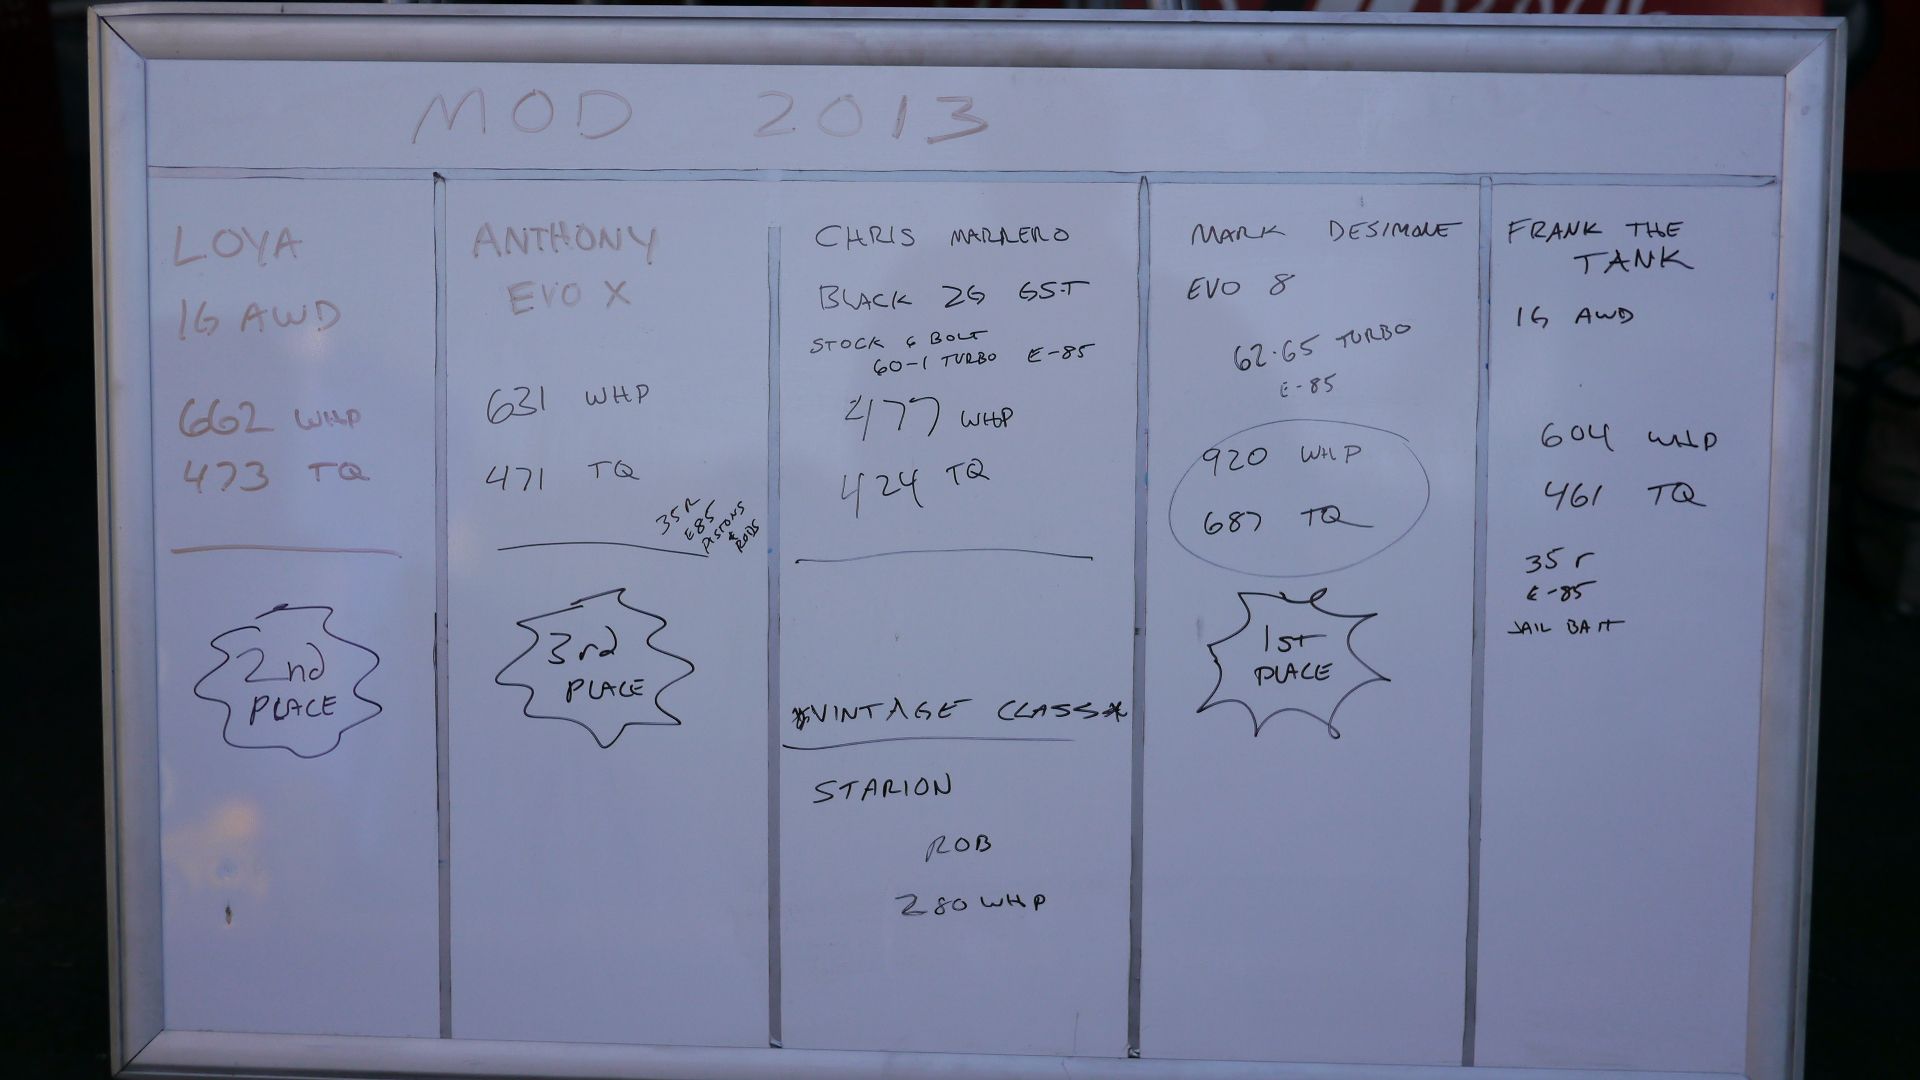 MOD 2013
LOYA
1G AWD
662 WHP
473 TQ
2nd
PLACE
ANTHONY
EVO X
631 WHP
471 TQ
35R
E85
PISTONS
&
RODS
3rd
PLACE
CHRIS MARRERO
BLACK 2G GST
STOCK 6 BOLT
60-1 TURBO E-85
477 WHP
424 TQ
*VINTAGE CLASS*
STARION
ROB
280 WHP
MARK DESIMONE
EVO 8
62-65 TURBO
E-85
920 WHP
687 TQ
1ST
PLACE
FRANK THE
TANK
1G AWD
604 WHP
461 TQ
35r
E-85
JAIL BAIT